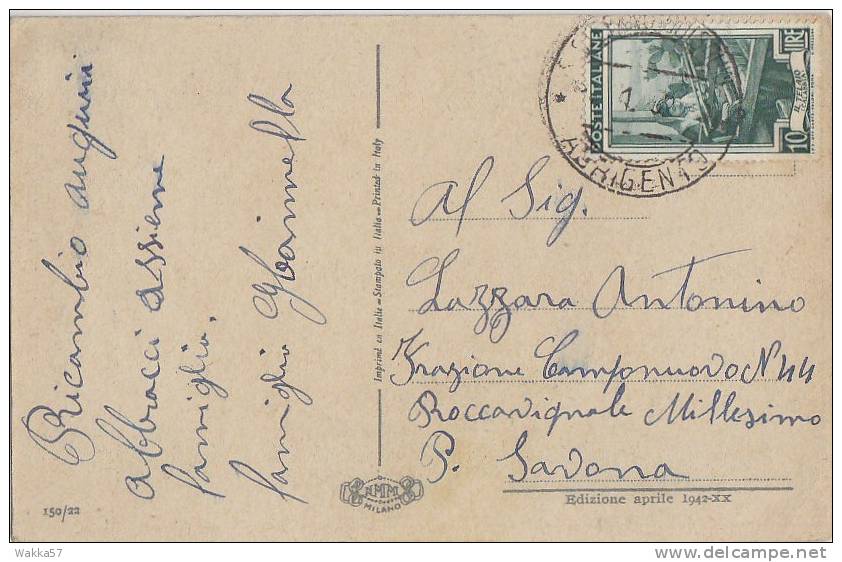 Ricambio auguri
Abbracci assieme
famiglia.
famiglia
150/22
Imprimé en Italie — Stampato in Italia — Printed in Italy
NMM
MILANO
POSTE ITALIANE
LIRE
10
IL TELAIO
AGRIGENTO
Al Sig.
Lazzara Antonino
Frazione Camponuovo N 44
Roccavignale Millesimo
P. Savona
Edizione aprile 1942-XX
Wakka57
www.delcampe.net